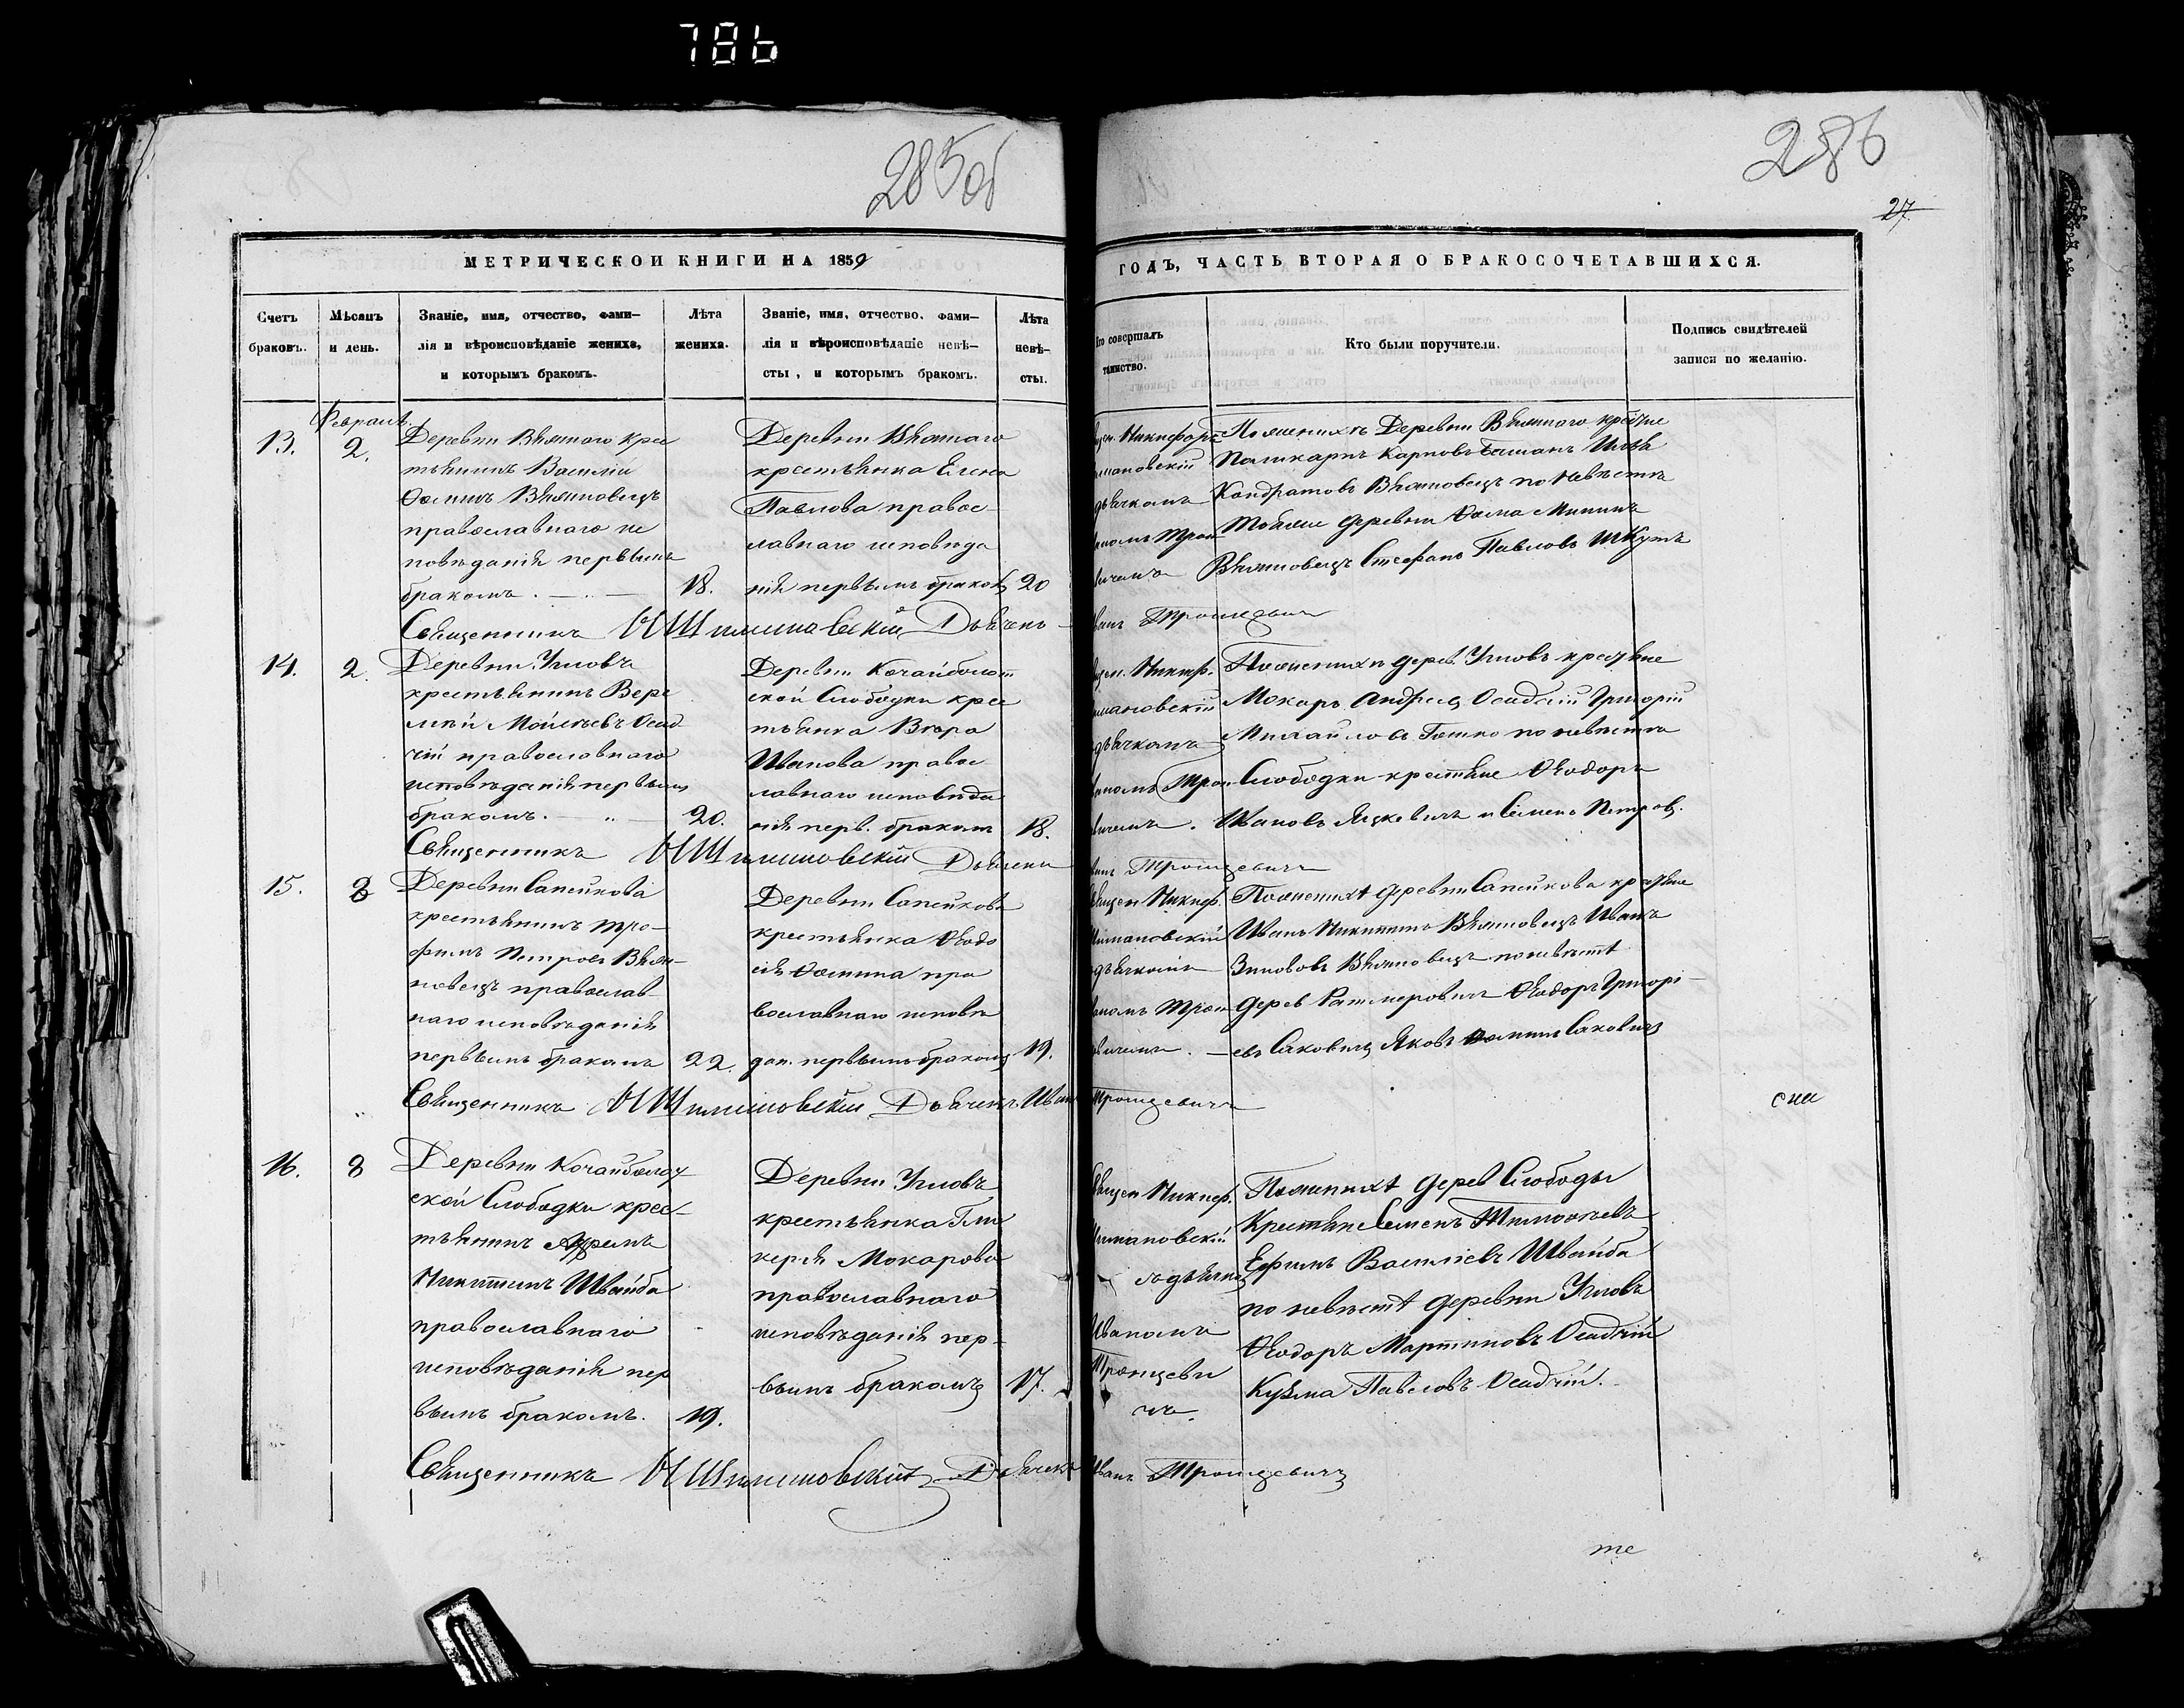 786
285об
286
27.
МЕТРИЧЕСКОЙ КНИГИ НА 1859
ГОДЪ, ЧАСТЬ ВТОРАЯ О БРАКОСОЧЕТАВШИХСЯ.
Счетъ
браковъ.
Мѣсяцъ
и день.
Званіе, имя, отчество, фами-
лія и вѣроисповѣданіе жениха,
и которымъ бракомъ.
Лѣта
жениха.
Званіе, имя, отчество, фами-
лія и вѣроисповѣданіе невѣ-
сты, и которымъ бракомъ.
Лѣта
невѣ-
сты.
Кто совершалъ
таинство.
Кто были поручители.
Подпись свидѣтелей
записи по желанію.
Февраль.
13.
2.
Деревни Вѣятного крес
тьянинъ Василій
Ѳоминъ
православнаго ис
повѣданія первымъ
бракомъ.
18.
Деревни
крестьянка Елена
Павлова правос
лавнаго исповѣда
нія первымъ бракомъ
20
Никифоръ
мановскій
дьячкомъ
По женихѣ Деревни крестьяне
Поликарпъ Карповъ Илья
Кондратовъ по невѣстѣ
тойже деревни Ѳома Мининъ
Стефанъ Павловъ
Священникъ Н Шимановскій Дьячекъ
Иванъ Троицевичъ
14.
2.
Деревни Угловъ
крестьянинъ Вере
мѣй Мойсѣевъ Осад
чій православнаго
исповѣданія первымъ
бракомъ.
20.
Деревни Кочайболот
ской Слободки крес
тьянка Вѣра
Иванова правос
лавнаго исповѣда
нія перв. бракомъ
18.
Никиф.
мановскій
дьячкомъ
По женихѣ дерев. Угловъ крестьяне
Мокаръ Андреевъ Осадчій Григорій
Михайловъ по невѣстѣ
Слободки крестьяне Ѳеодоръ
Ивановъ Яцкевичъ и Семенъ Петров.
Священникъ Н Шимановскій Дьячекъ
Иванъ Троицевичъ
15.
8
Деревни Сапейкова
крестьянинъ Тро-
фимъ Петровъ
православ-
наго исповѣданія
первымъ бракомъ
22.
Деревни Сапейкова
крестьянка Ѳеодо
сія Ѳомина пра
вославнаго исповѣ
дан. первымъ бракомъ
19.
Священ Никиф.
Шимановскій
дьячкомъ
По женихѣ деревни Сапейкова крестьяне
Иванъ Никитинъ Иванъ
Зинововъ по невѣстѣ
дерев Ѳеодоръ Григорі-
евъ Саковичъ Яковъ Ѳоминъ Саковичъ
Священникъ Н Шимановскій Дьячекъ Иванъ
Троицевичъ
16.
8
Деревни Кочайболот
ской Слободки крес-
тьянинъ
Никитинъ Швайба
православнаго
исповѣданія пер
вымъ бракомъ.
19.
Деревни Угловъ
крестьянка Гли
керія Мокарова
православнаго
исповѣданія пер-
вымъ бракомъ
17.
Священ Никиф.
Шимановскій
съ дьячк
Иваномъ
Троицеви
чъ.
По женихѣ дерев Слободы
Крестьяне Семенъ Тимоѳеевъ
Ефимъ Василіевъ Швайба
по невѣстѣ деревни Угловъ
Ѳеодоръ Мартиновъ Осадчій
Кузма Павловъ Осадчій.
Священникъ Н Шимановскій Дьячекъ
Иванъ Троицевичъ